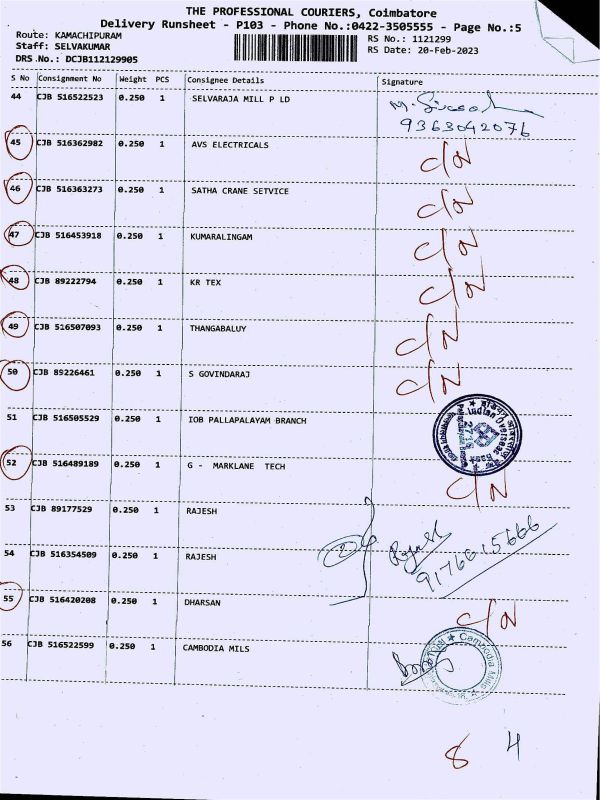 THE PROFESSIONAL COURIERS, Coimbatore
Delivery Runsheet - P103 - Phone No.:0422-3505555 - Page No.:5
Route: KAMACHIPURAM
RS No.: 1121299
Staff: SELVAKUMAR
RS Date: 20-Feb-2023
DRS No.: DCJB112129905
S No Consignment No Weight PCS Consignee Details Signature
44 CJB 516522523 0.250 1 SELVARAJA MILL P LD
9363042076
45 CJB 516362982 0.250 1 AVS ELECTRICALS C/N
46 CJB 516363273 0.250 1 SATHA CRANE SETVICE C/N
47 CJB 516453918 0.250 1 KUMARALINGAM C/N
48 CJB 89222794 0.250 1 KR TEX C/N
49 CJB 516507093 0.250 1 THANGABALUY C/N
50 CJB 89226461 0.250 1 S GOVINDARAJ C/N
51 CJB 516505529 0.250 1 IOB PALLAPALAYAM BRANCH
Indian Overseas Bank
52 CJB 516489189 0.250 1 G - MARKLANE TECH C/N
53 CJB 89177529 0.250 1 RAJESH
54 CJB 516354509 0.250 1 RAJESH 2 Rajesh
9176615666
55 CJB 516420208 0.250 1 DHARSAN C/N
56 CJB 516522599 0.250 1 CAMBODIA MILS
Cambodia Mills
8 4